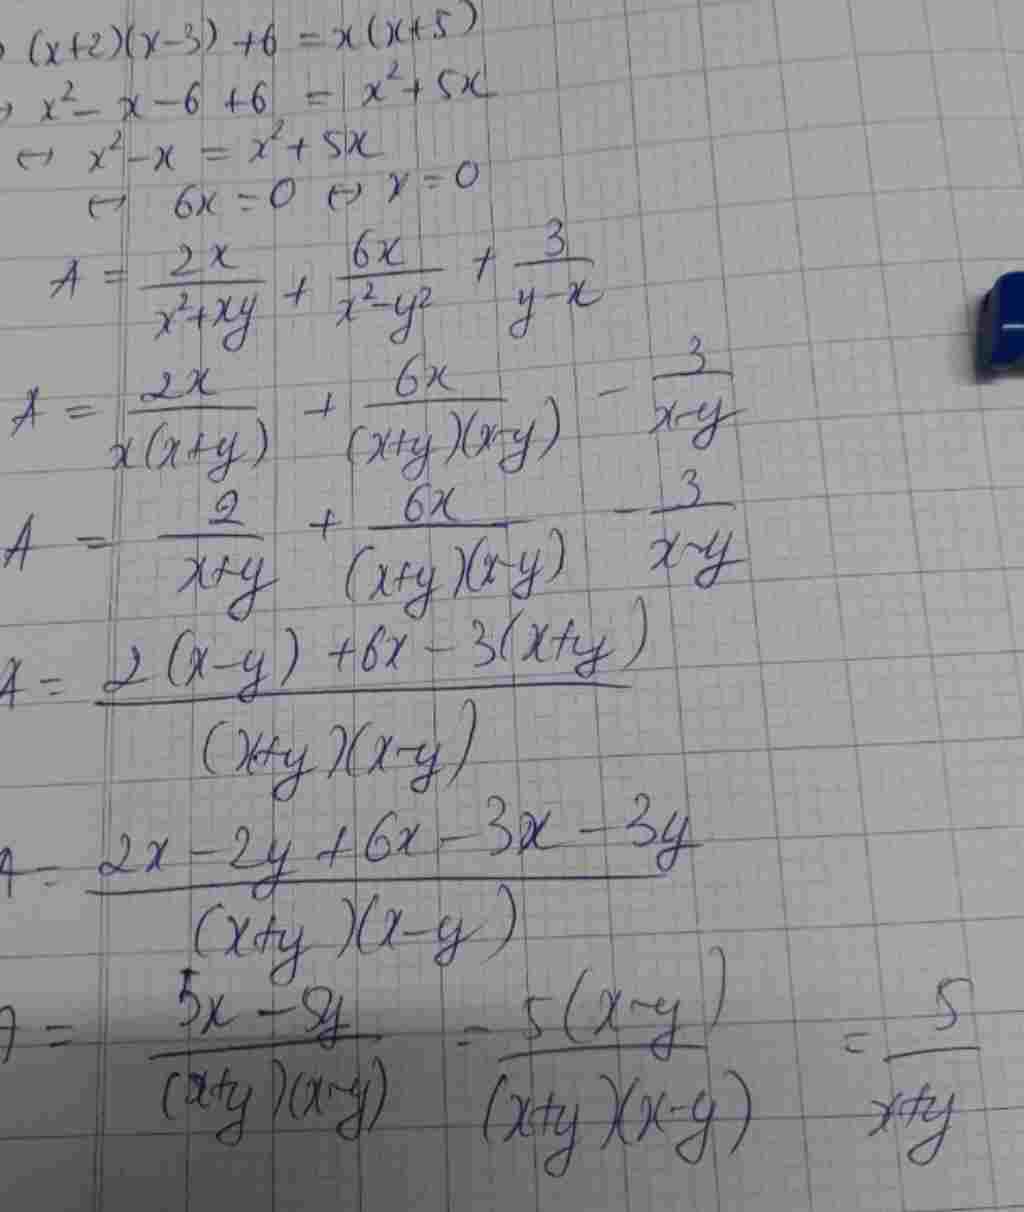 (x+2)(x-3) +6 = x(x+5)
↔ x² - x - 6 + 6 = x² + 5x
↔ x² - x = x² + 5x
↔ 6x = 0 ↔ x = 0
A = 2x/(x²+xy) + 6x/(x²-y²) + 3/(y-x)
A = 2x/(x(x+y)) + 6x/((x+y)(x-y)) - 3/(x-y)
A = 2/(x+y) + 6x/((x+y)(x-y)) - 3/(x-y)
A = (2(x-y) + 6x - 3(x+y))/((x+y)(x-y))
A = (2x - 2y + 6x - 3x - 3y)/((x+y)(x-y))
A = (5x - 5y)/((x+y)(x-y)) = 5(x-y)/((x+y)(x-y)) = 5/(x+y)